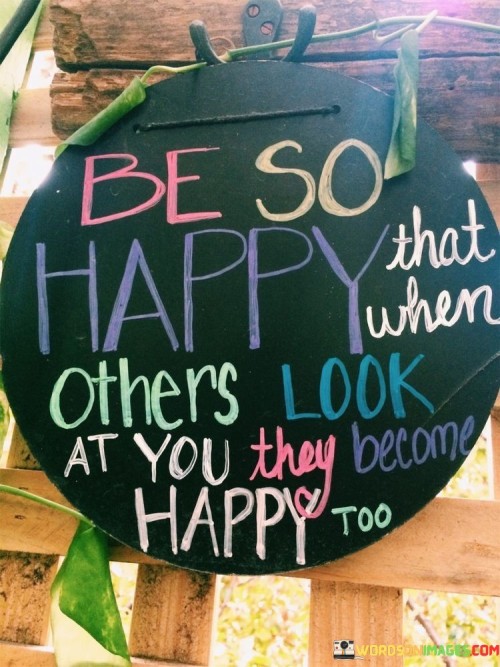 BE SO
HAPPY that
when
others LOOK
AT YOU they become
HAPPY TOO
WORDSONIMAGES.COM